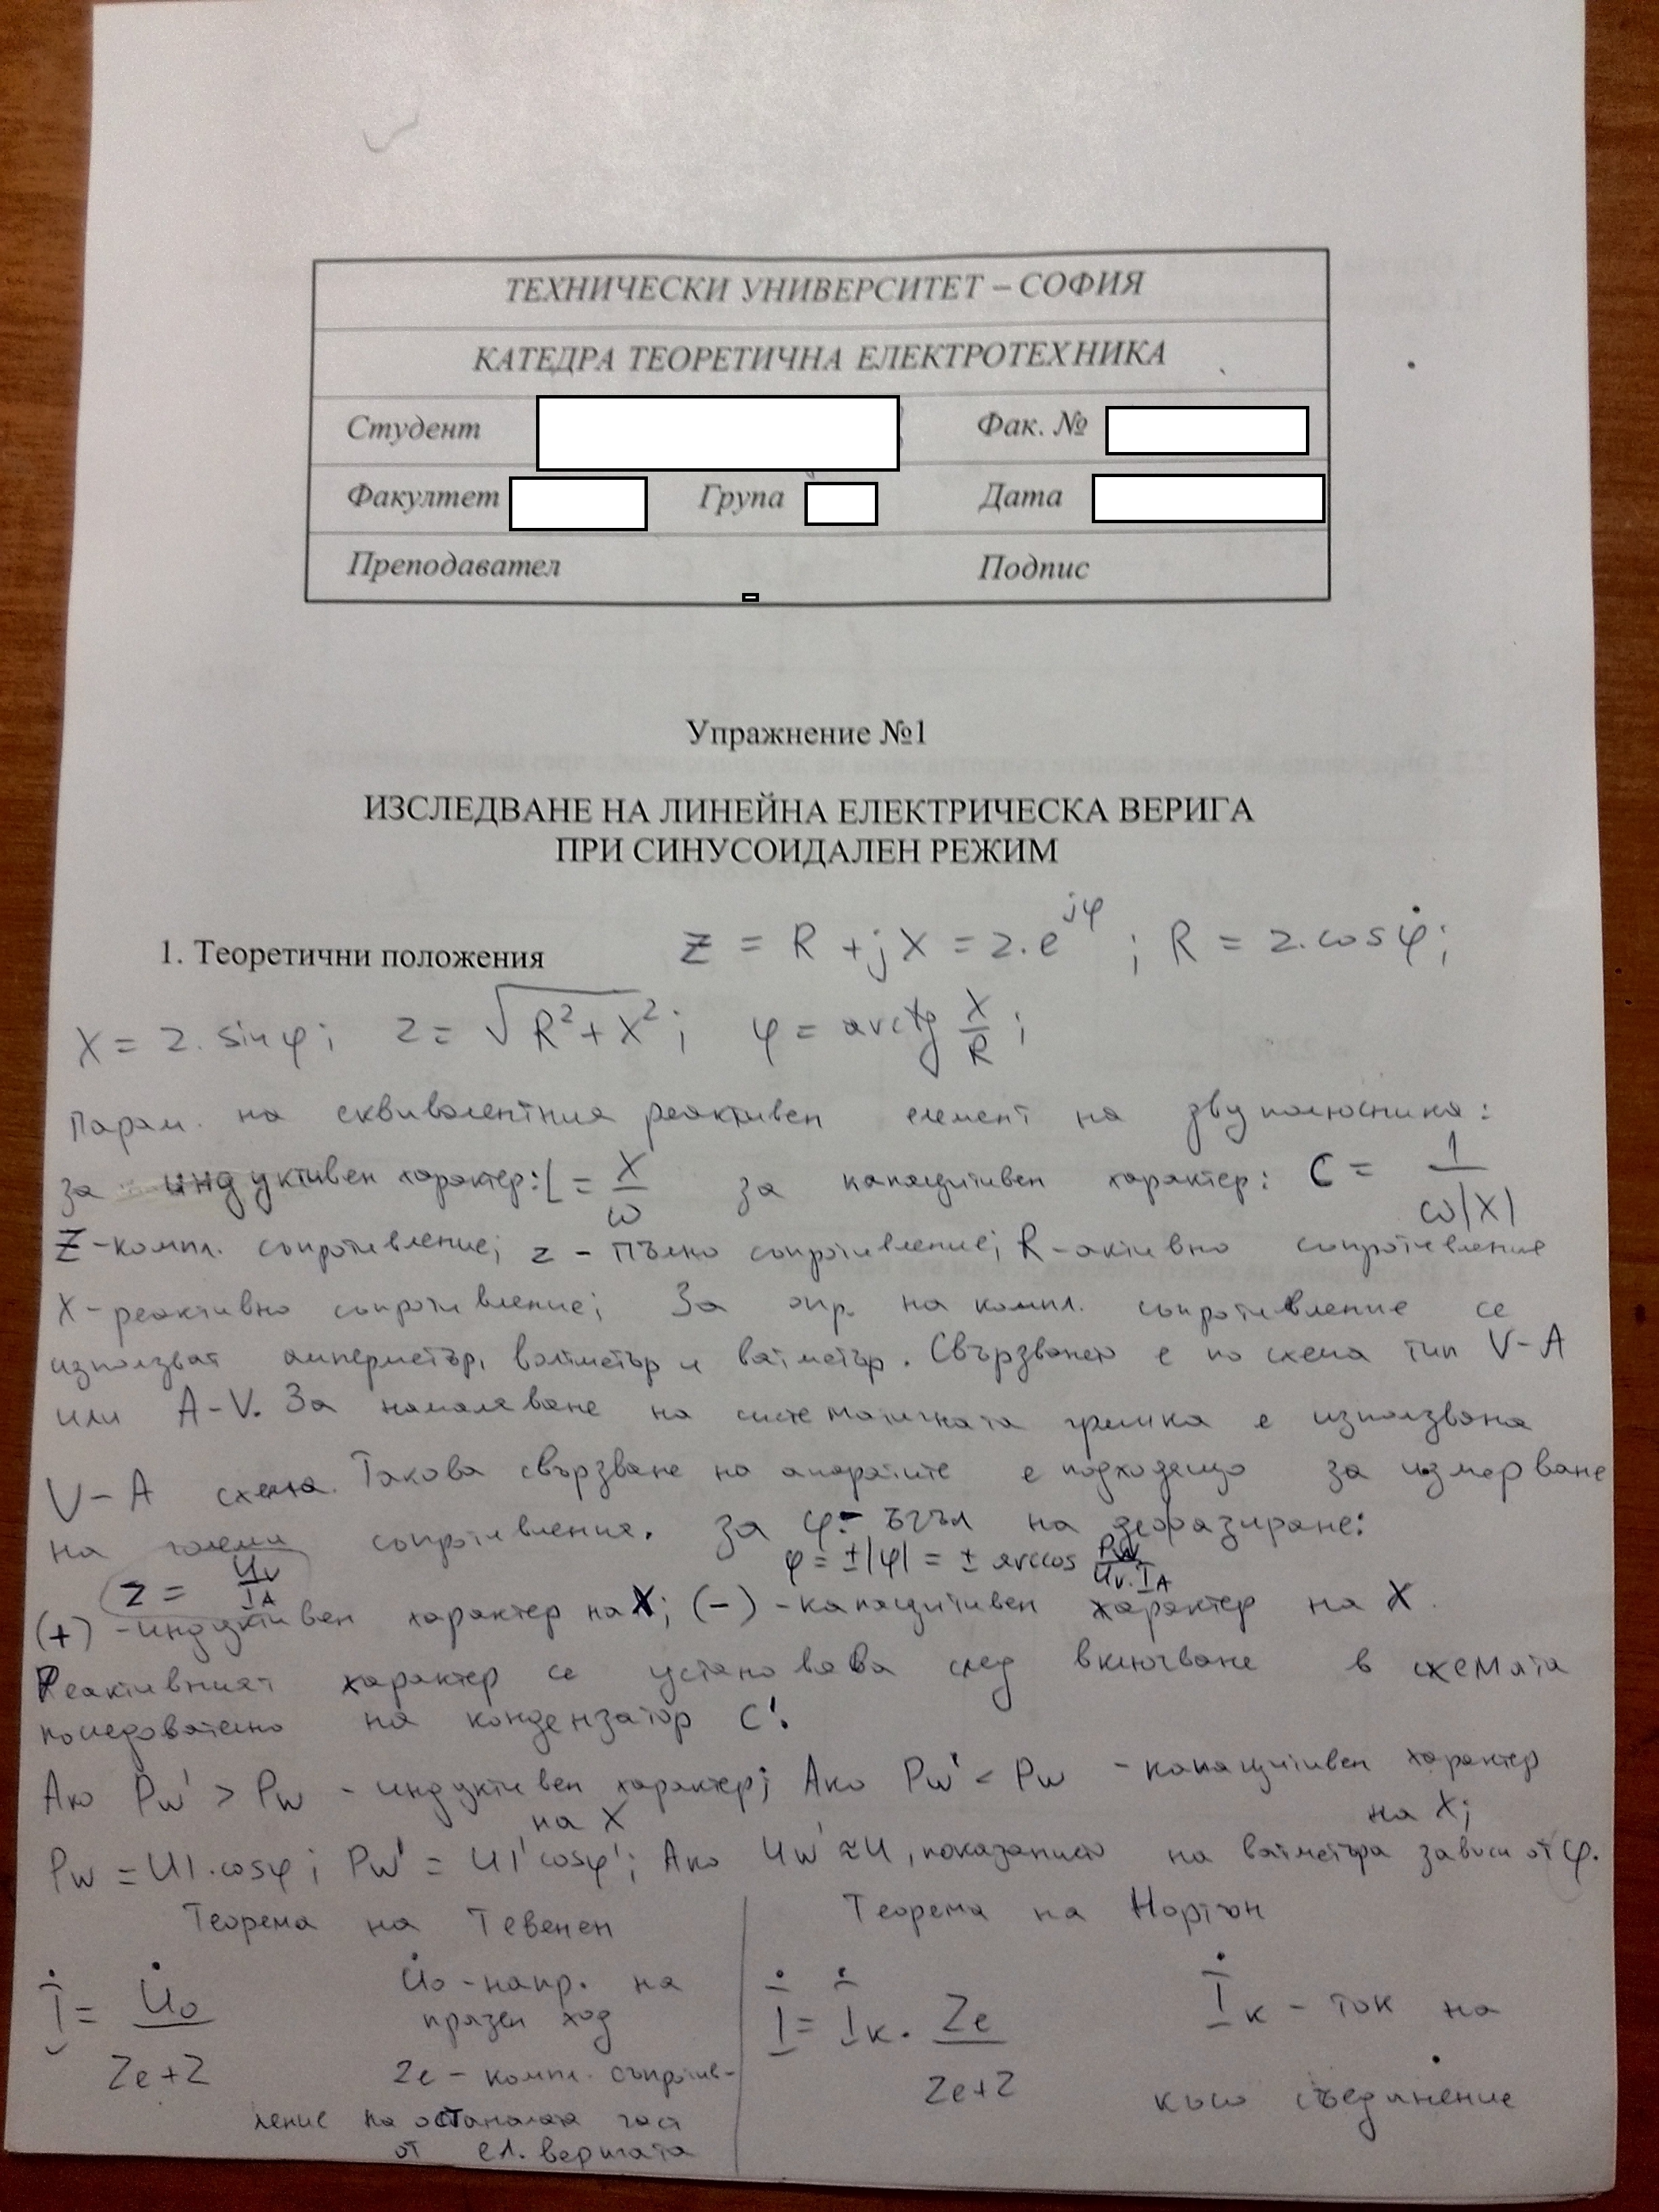 ТЕХНИЧЕСКИ УНИВЕРСИТЕТ – СОФИЯ
КАТЕДРА ТЕОРЕТИЧНА ЕЛЕКТРОТЕХНИКА
Студент Фак. №
Факултет Група Дата
Преподавател Подпис
Упражнение №1
ИЗСЛЕДВАНЕ НА ЛИНЕЙНА ЕЛЕКТРИЧЕСКА ВЕРИГА
ПРИ СИНУСОИДАЛЕН РЕЖИМ
1. Теоретични положения Z = R + jX = z.e^jφ ; R = z.cosφ;
X = z.sinφ; z = √(R² + X²); φ = arctg X/R;
Парам. на еквивалентния реактивен елемент на двуполюсника:
за индуктивен характер: L = X/ω за капацитивен характер: C = 1/ω|X|
Z - компл. съпротивление; z - пълно съпротивление; R - активно съпротивление
X - реактивно съпротивление; За опр. на компл. съпротивление се
използват амперметър, волтметър и ватметър. Свързването е по схема тип V-A
или A-V. За намаляване на систематичната грешка е използвана
V-A схема. Такова свързване на апаратите е подходящо за измерване
на големи съпротивления. За φ - ъгъл на дефазиране:
z = Uv/IA φ = ±|φ| = ± arccos Pw/Uv.IA
(+) - индуктивен характер на X; (-) - капацитивен характер на X.
Реактивният характер се установява след включване в схемата
последователно на кондензатор C'.
Ако Pw' > Pw - индуктивен характер; Ако Pw' < Pw - капацитивен характер
на X на X;
Pw = UI.cosφ; Pw' = UI'cosφ'; Ако Uw' ≈ U, показанието на ватметъра зависи от φ.
Теорема на Тевенен Теорема на Нортън
İ = U̇o/Ze+Z U̇o - напр. на празен ход İ = İк . Ze/Ze+Z İк - ток на
Ze - компл. съпротив- късо съединение
ление на останалата част
от ел. веригата